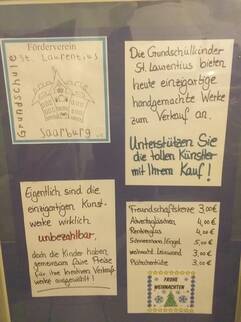 Förderverein
St. Laurentius
Grundschule
Saarburg e.V.
Die Grundschulkinder
St. Laurentius bieten
heute einzigartige
handgemachte Werke
zum Verkauf an.
Unterstützen Sie
die tollen Künstler
mit Ihrem Kauf!
Eigentlich sind die
einzigartigen Kunst-
werke wirklich
unbezahlbar,
doch die Kinder haben
gemeinsam faire Preise
für ihre kreativen Verkaufs
werke ausgewählt!
Freundschaftskerze 3,00€
Adventsgläschen 4,00€
Rentierglas 4,00€
Schneemann/Engel 5,00€
weihnachtl. Leinwand 3,00€
Plätzchentüte 3,00€
FROHE
WEIHNACHTEN